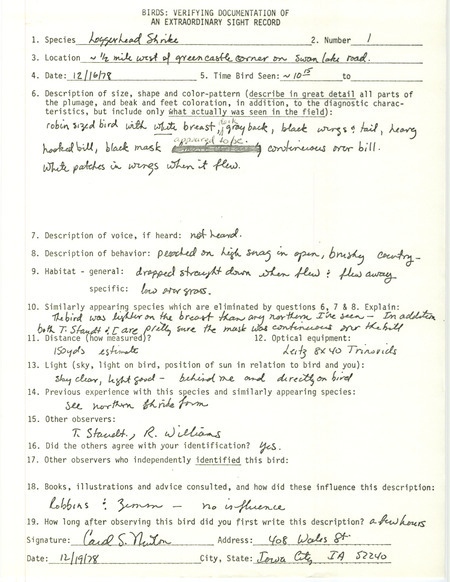 BIRDS: VERIFYING DOCUMENTATION OF
AN EXTRAORDINARY SIGHT RECORD
1. Species Loggerhead Shrike 2. Number 1
3. Location ~ 1/2 mile west of greencastle corner on Swan lake road.
4. Date: 12/16/78 5. Time Bird Seen: ~ 10 15 to
6. Description of size, shape and color-pattern (describe in great detail all parts of
the plumage, and beak and feet coloration, in addition, to the diagnostic charac-
teristics, but include only what actually was seen in the field):
robin sized bird with white breast, dark gray back, black wings & tail, heavy
hooked bill, black mask appeared to be continuous over bill.
White patches in wings when it flew.
7. Description of voice, if heard: not heard.
8. Description of behavior: perched on high snag in open, brushy country -
9. Habitat - general: dropped straight down when flew & flew away
specific: low over grass.
10. Similarly appearing species which are eliminated by questions 6, 7 & 8. Explain:
The bird was lighter on the breast than any northern I've seen - In addition
both T. Staudt & I are pretty sure the mask was continuous over the bill
11. Distance (how measured)? 12. Optical equipment:
150 yds estimate Leitz 8x40 Trinovids
13. Light (sky, light on bird, position of sun in relation to bird and you):
sky clear, light good - behind me and directly on bird
14. Previous experience with this species and similarly appearing species:
see northern shrike form
15. Other observers:
T. Staudt, R. Williams
16. Did the others agree with your identification? yes.
17. Other observers who independently identified this bird:
18. Books, illustrations and advice consulted, and how did these influence this description:
Robbins & Zimm - no influence
19. How long after observing this bird did you first write this description? a few hours
Signature: Carol S. Newton Address: 408 Wales St
Date: 12/19/78 City, State: Iowa City IA 52240